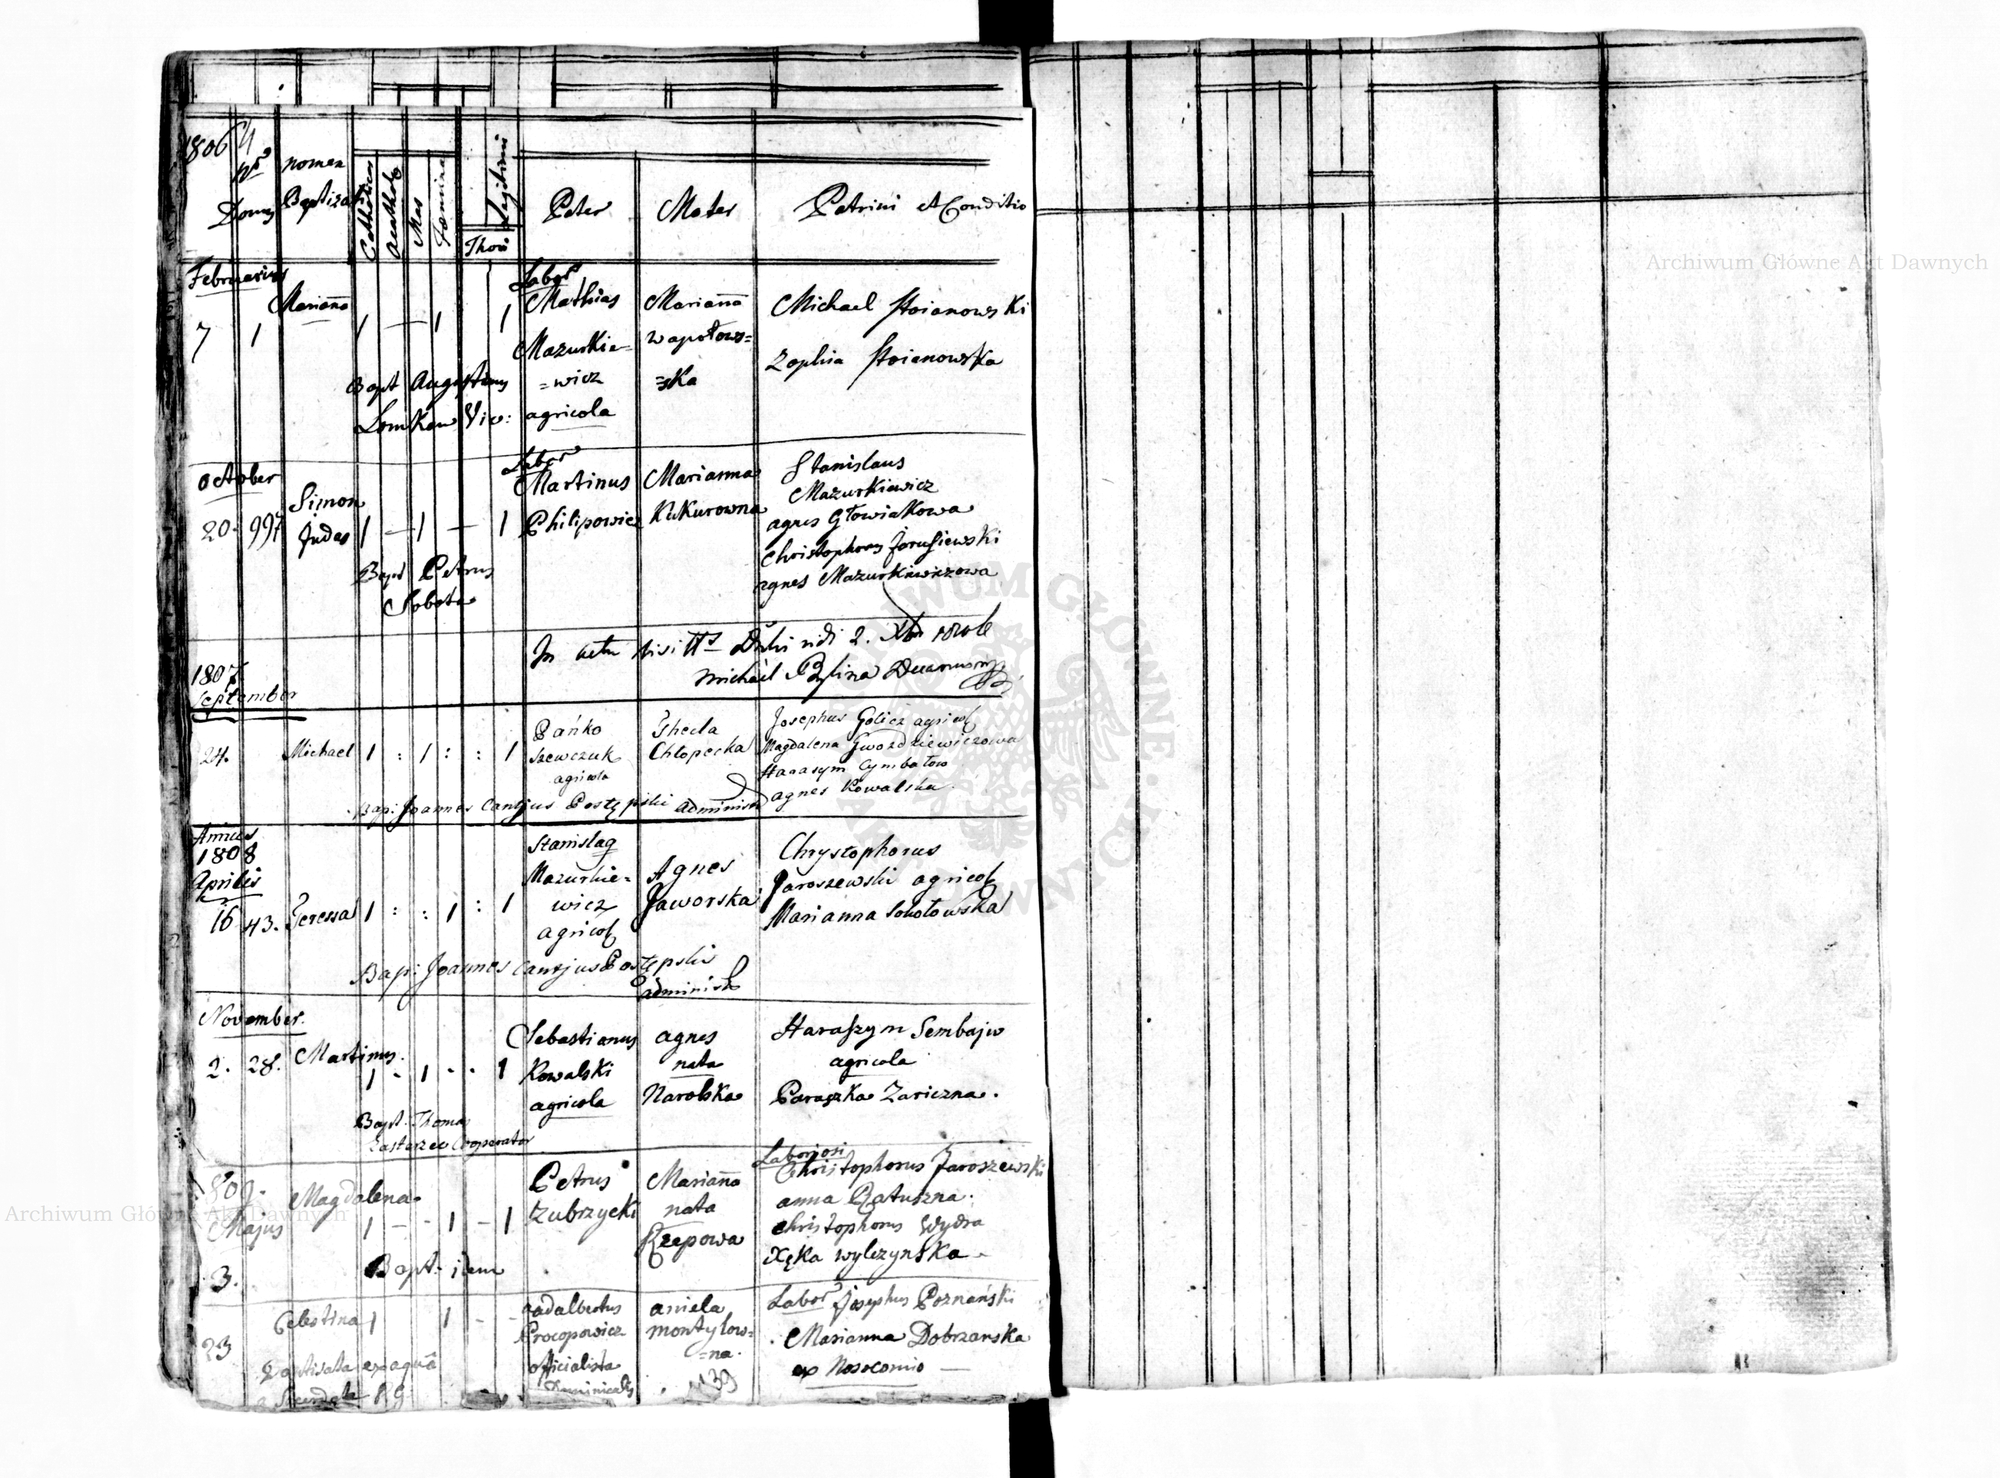 1806
Nro Domus
nomen Baptizati
Catholica
Mas
Femina
Legitimi
Thori
Pater
Mater
Patrini et Conditio
Februarius
7
1
Marianna
1 — 1 1
Labor
Mathias
Mazurkie=
=wicz
agricola
Marianna
Wapołows=
=ska
Michael Stoianowski
Zophia Stoianowska
Bapt Augustinus
Lomkow Vic:
October
20.
997
Simon
Judas
1 — 1 — 1
Labor
Martinus
Philipowicz
Marianna
Kukurowna
Stanislaus
Mazurkiewicz
agnes Głowiakowa
Christophorus Jarusiewski
agnes Mazurkiewiczowa
Bapt Petrus
Sobota
In actu
vidi 2. Xbr
Michael
1807
September
24.
Michael
1 : 1 : : 1
Pańko
Szewczuk
agricola
Thecla
Chłopecka
Josephus Golicz agricol
Magdalena Gwozdziewiczowa
Harasym Cymbałow
agnes Kowalska
Bap: Joannes Cantjus Postępski administ
Annus
1808
Aprilis
16
43.
Teressa
1 : : 1 : 1
Stanislaq
Mazurkie=
wicz
agricol
Agnes
Jaworska
Chrystophorus
Jaroszewski agricol
Marianna Sokołowska
Bap: Joannes Cantjus Postępski
administ
November.
2.
28.
Martinus.
1 - 1 - - 1
Sebastianus
Kowalski
agricola
agnes
nata
Narolska
Haraszyn Sembajw
agricola
Paraszka Zariczna.
Bapt. Thomas
Cooperator
809.
Majus
3.
Magdalena
1 - - 1 - 1
Petrus
Zubrzycki
Marianna
nata
Rzepowa
Laboriosi
Christophorus Jaroszewski
anna Ratuszna.
Christophorus Wydra
Xęka Wylczynska.
Bapt. idem
23
Celestina
1 1 - -
adalbertus
Procopowicz
officialista
Dominicalis
aniela
montylow=
=na.
139
Labor Josephus Poznański
Marianna Dobrzanska
ex Nosocomio —
Baptisata ex aquâ
Archiwum Główne Akt Dawnych
Archiwum Główne Akt Dawnych
ARCHIWUM GŁÓWNE AKT DAWNYCH